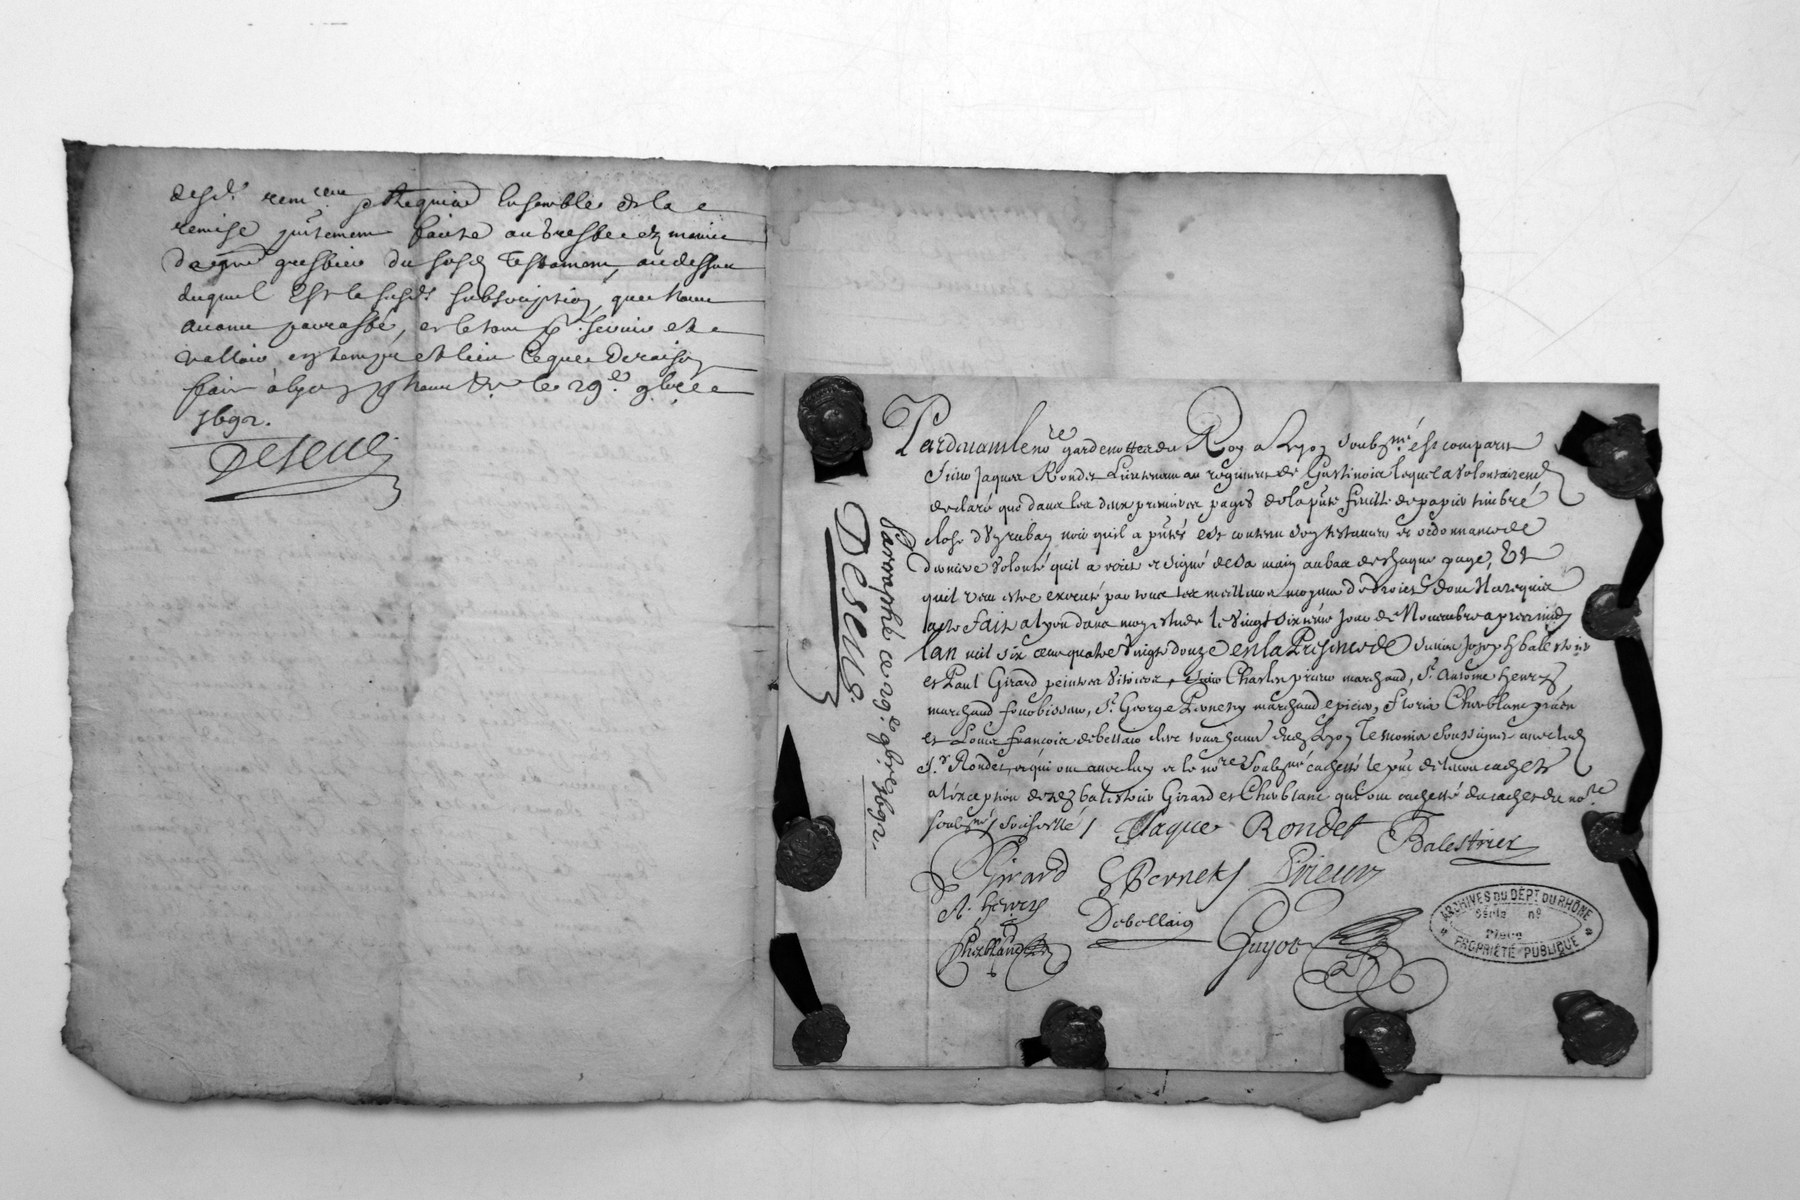 desd. remce. & Requis Ensemble de la
remise faicte
du susd. Testament, au dessus
duquel Est la susd. subscription, que nous
avons parraffé, et le tout p. servir et
valloir en temps et lieu Ce que de raison
fait à Lyon le 29e. 9bre
1692.
Deseue
Pardevant le nore gardenottes du Roy a Lyon soubzné. est comparu
Sieur Jaques Rondet Lieutenant au regiment de Gastinois lequel a volontairemt.
declaré que dans les deux premieres pages de la pnte feuille de papier timbré
close d'un ruban noir quil a pntés est contenu son testament et ordonnance de
derniere volonté quil a et signé de sa main au bas de chaque page, Et
quil veut estre executé par tous les meilleurs moyens de droict dont Il a requis
acte fait a Lyon dans mon estude le vingt sixieme jour de Novembre apres midy
lan mil six cens quatre vingts douze en la Presence de sieurs Joseph balestrier
et Paul Girard peintres Charles prieur marchand, Sr. Antoine henry,
marchand fourbisseur, Sr. George Pernety marchand epicier, Floris Cheblanc
et Louis François debellair clerc tous dud. Lyon Temoins soussignes avec led.
Sr. Rondet, et qui ont avec luy et le nore soubzné cachetté le pnt de leurs cachets
a l'exception desd. balestrier Girard et Cheblanc qui ont cachetté du cachet du nore.
soubzné /
Jaque Rondet Balestrier
Girard GPernety Prieur
A. henry
Debellair
Cheblanc
Guyot
Deseue.
Parraphé ce 29e. 9bre 1692.
ARCHIVES DU DÉPT DU RHÔNE
Série no
Pièce
PROPRIÉTÉ PUBLIQUE